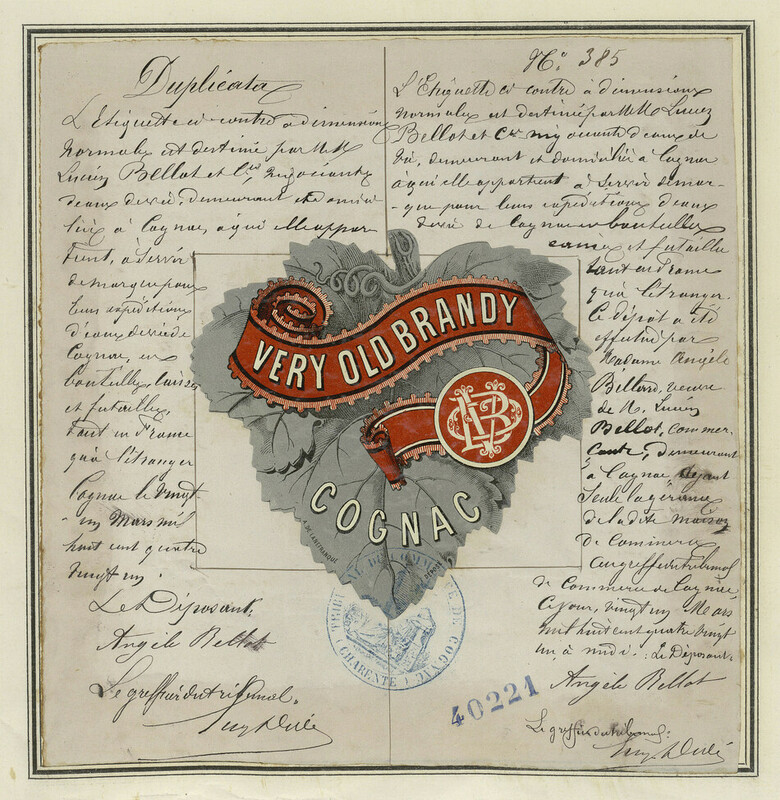 Duplicata
L'Etiquette ci contre à dimensions
normales est destinée par MM
Lucien Bellot et Cie, négociants
d'eaux de vie, demeurant et domici
liés à Cognac, à qui elle appar
tient, à servir
de marque pour
leurs expéditions
d'eaux de vie de
Cognac, en
bouteilles, caisses
et futailles,
tant en France
qu'à l'étranger
Cognac le vingt
un Mars mil
huit cent quatre
vingt un.
Le Déposant,
Angèle Bellot
Le greffier du tribunal
No 385
L'Etiquette ci contre à dimensions
normales est destinée par MM Lucien
Bellot et Cie négociants d'eaux de
vie, demeurant et domiciliés à Cognac
à qui elle appartient à servir de mar-
-que pour leurs expéditions d'eaux
de vie de Cognac en bouteilles
caisses et futailles
tant en France
qu'à l'étranger.
Le dépôt a été
effectué par
Madame Angèle
Billard, veuve
de M. Lucien
Bellot, commer-
çante, demeurant
à Cognac, ayant
seule la gérance
de la dite maison
de Commerce
au greffe du tribunal
de Commerce de Cognac,
ce jour, vingt un Mars
mil huit cent quatre vingt
un, à midi. Le Déposant
Angèle Bellot
Le greffier du tribunal:
VERY OLD BRANDY
LB
COGNAC
A. DE LANEFRANQUE
DÉPOSÉ
TRIBUNAL DE COMMERCE DE COGNAC
CHARENTE
40221